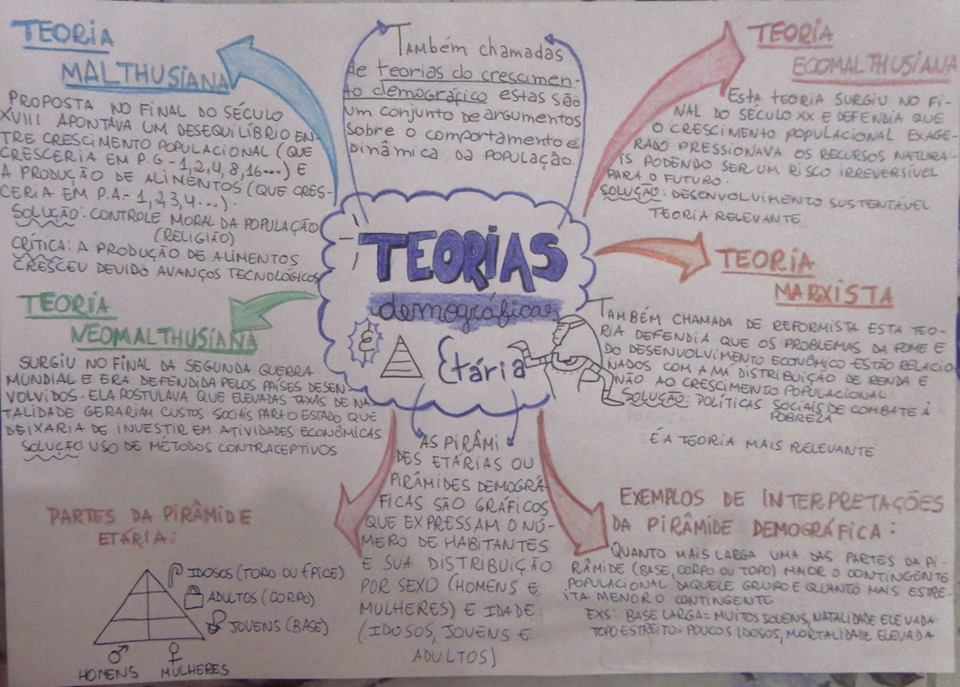 TEORIA
MALTHUSIANA
PROPOSTA NO FINAL DO SÉCULO
XVIII APONTAVA UM DESEQUILÍBRIO EN-
TRE CRESCIMENTO POPULACIONAL (QUE
CRESCERIA EM P.G - 1,2,4,8,16...) E
A PRODUÇÃO DE ALIMENTOS (QUE CRES-
CERIA EM P.A - 1,2,3,4...).
SOLUÇÃO: CONTROLE MORAL DA POPULAÇÃO
(RELIGIÃO)
CRÍTICA: A PRODUÇÃO DE ALIMENTOS
CRESCEU DEVIDO AVANÇOS TECNOLÓGICOS
TEORIA
NEOMALTHUSIANA
SURGIU NO FINAL DA SEGUNDA GUERRA
MUNDIAL E ERA DEFENDIDA PELOS PAÍSES DESEN-
VOLVIDOS. ELA POSTULAVA QUE ELEVADAS TAXAS DE NA-
TALIDADE GERARIAM CUSTOS SOCIAIS PARA O ESTADO QUE
DEIXARIA DE INVESTIR EM ATIVIDADES ECONÔMICAS
SOLUÇÃO USO DE MÉTODOS CONTRACEPTIVOS
TAMBÉM CHAMADAS
DE TEORIAS DO CRESCIMEN-
TO DEMOGRÁFICO ESTAS SÃO
UM CONJUNTO DE ARGUMENTOS
SOBRE O COMPORTAMENTO E
DINÂMICA DA POPULAÇÃO.
TEORIAS
demográficas
E
Etária
TEORIA
ECOMALTHUSIANA
ESTA TEORIA SURGIU NO FI-
NAL DO SÉCULO XX E DEFENDIA QUE
O CRESCIMENTO POPULACIONAL EXAGE-
RADO PRESSIONAVA OS RECURSOS NATURA-
IS PODENDO SER UM RISCO IRREVERSÍVEL
PARA O FUTURO.
SOLUÇÃO: DESENVOLVIMENTO SUSTENTÁVEL
TEORIA RELEVANTE
TEORIA
MARXISTA
TAMBÉM CHAMADA DE REFORMISTA ESTA TEO-
RIA DEFENDIA QUE OS PROBLEMAS DA FOME E
DO DESENVOLVIMENTO ECONÔMICO ESTÃO RELACIO
NADOS COM A MÁ DISTRIBUIÇÃO DE RENDA E
NÃO AO CRESCIMENTO POPULACIONAL
SOLUÇÃO: POLÍTICAS SOCIAIS DE COMBATE À
POBREZA
É A TEORIA MAIS RELEVANTE
PARTES DA PIRÂMIDE
ETÁRIA:
IDOSOS (TOPO OU ÁPICE)
ADULTOS (CORPO)
JOVENS (BASE)
HOMENS MULHERES
AS PIRÂMI
DES ETÁRIAS OU
PIRÂMIDES DEMOGRÁ-
FICAS SÃO GRÁFICOS
QUE EXPRESSAM O NÚ-
MERO DE HABITANTES
E SUA DISTRIBUIÇÃO
POR SEXO (HOMENS E
MULHERES) E IDADE
(IDOSOS, JOVENS E
ADULTOS)
EXEMPLOS DE INTERPRETAÇÕES
DA PIRÂMIDE DEMOGRÁFICA:
QUANTO MAIS LARGA UMA DAS PARTES DA PI-
RÂMIDE (BASE, CORPO OU TOPO) MAIOR O CONTINGENTE
POPULACIONAL DAQUELE GRUPO E QUANTO MAIS ESTREI
ITA MENOR O CONTINGENTE
EXS: BASE LARGA= MUITOS JOVENS, NATALIDADE ELEVADA
TOPO ESTREITO= POUCOS IDOSOS, MORTALIDADE ELEVADA